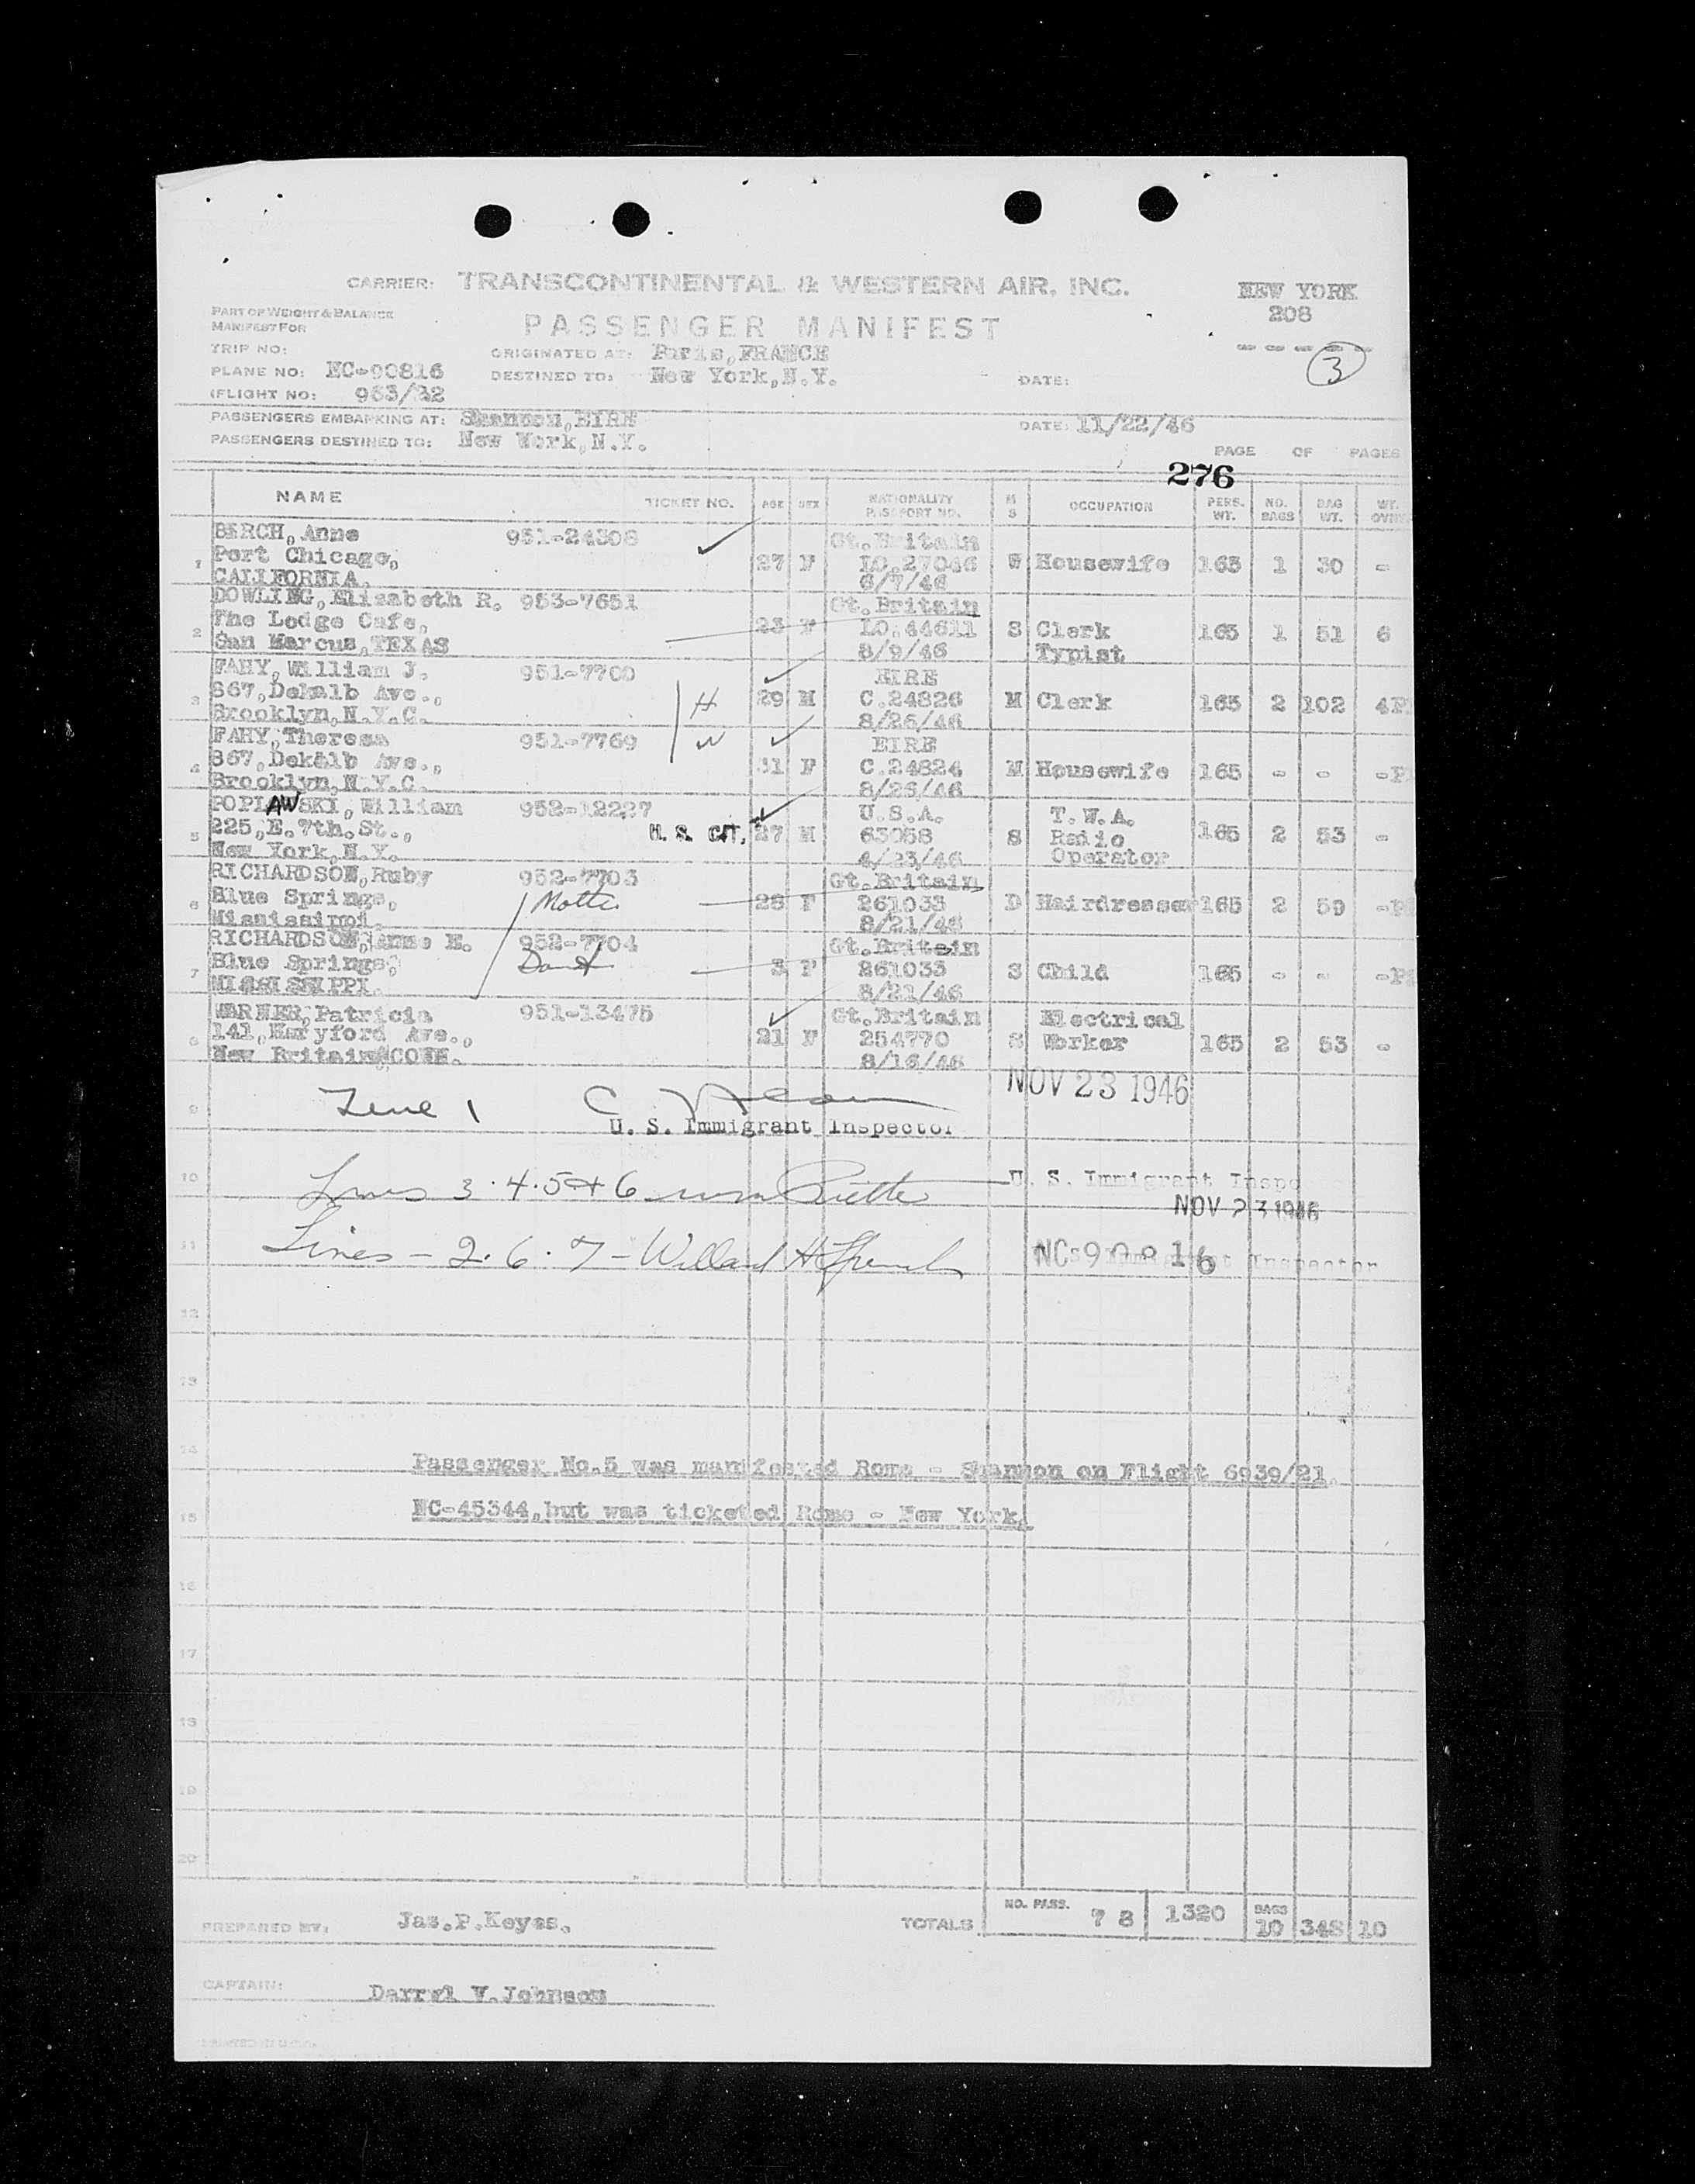 CARRIER: TRANSCONTINENTAL & WESTERN AIR, INC.
NEW YORK
208
PART OF WEIGHT & BALANCE
MANIFEST FOR
PASSENGER MANIFEST
3
TRIP NO:
ORIGINATED AT: Paris, FRANCE
PLANE NO: NC-90816
DESTINED TO: New York, N.Y.
DATE:
(FLIGHT NO: 963/22
PASSENGERS EMBARKING AT: Shannon, EIRE
DATE: 11/22/46
PASSENGERS DESTINED TO: New York, N.Y.
PAGE OF PAGES
276
NAME TICKET NO. AGE SEX NATIONALITY PASSPORT NO. M S OCCUPATION PERS. WT. NO. BAGS BAG WT. WT.
BERCH, Anne 951-24308 Gt. Britain
1 Port Chicago, 27 F LO.27046 W Housewife 165 1 30 -
CALIFORNIA. 6/7/46
DOWLING, Elizabeth R. 953-7651 Gt. Britain
2 The Lodge Cafe, 23 F LO.44611 S Clerk 165 1 51 6
San Marcus, TEXAS 8/9/46 Typist
FAHY, William J. 951-7700 EIRE
3 867, Dekalb Ave., H 29 M C.24826 M Clerk 165 2 102 4
Brooklyn, N.Y.C. 8/26/46
FAHY, Theresa 951-7769 EIRE
4 867, Dekalb Ave., W 31 F C.24824 M Housewife 165 - - -
Brooklyn, N.Y.C. 8/26/46
POPLAWSKI, William 952-12227 U.S.A. T.W.A.
5 225, E. 7th. St., U. S. CIT. 27 M 63058 S Radio 165 2 53 -
New York, N.Y. 4/23/46 Operator
RICHARDSON, Ruby 952-7703 Gt. Britain
6 Blue Springs, Mother 28 F 261033 D Hairdresser 165 2 59 -
Mississippi. 8/21/46
RICHARDSON, Anne E. 952-7704 Gt. Britain
7 Blue Springs, 3 F 261033 S Child 165 - - -
MISSISSIPPI. 8/21/46
WARNER, Patricia 951-13475 Gt. Britain Electrical
8 141, Ave., 21 F 254770 S Worker 165 2 53 -
New Britain, CONN. 8/16/46
NOV 23 1946
9 Line 1
U. S. Immigrant Inspector
10 Lines 3.4.5+6
U. S. Immigrant
NOV 23 1946
11 Lines - 2. 6. 7 - Willard H.
NC 90816 Inspector
12
13
14 Passenger No.5 was manifested Rome - Shannon on Flight 6939/21,
15 NC-45344, but was ticketed Rome - New York.
16
17
18
19
20
PREPARED BY: Jas. P. Keyes.
TOTALS NO. PASS. 7 8 1320 BAGS 10 348 10
CAPTAIN: Darryl V. Johnson
PRINTED IN U.S.A.